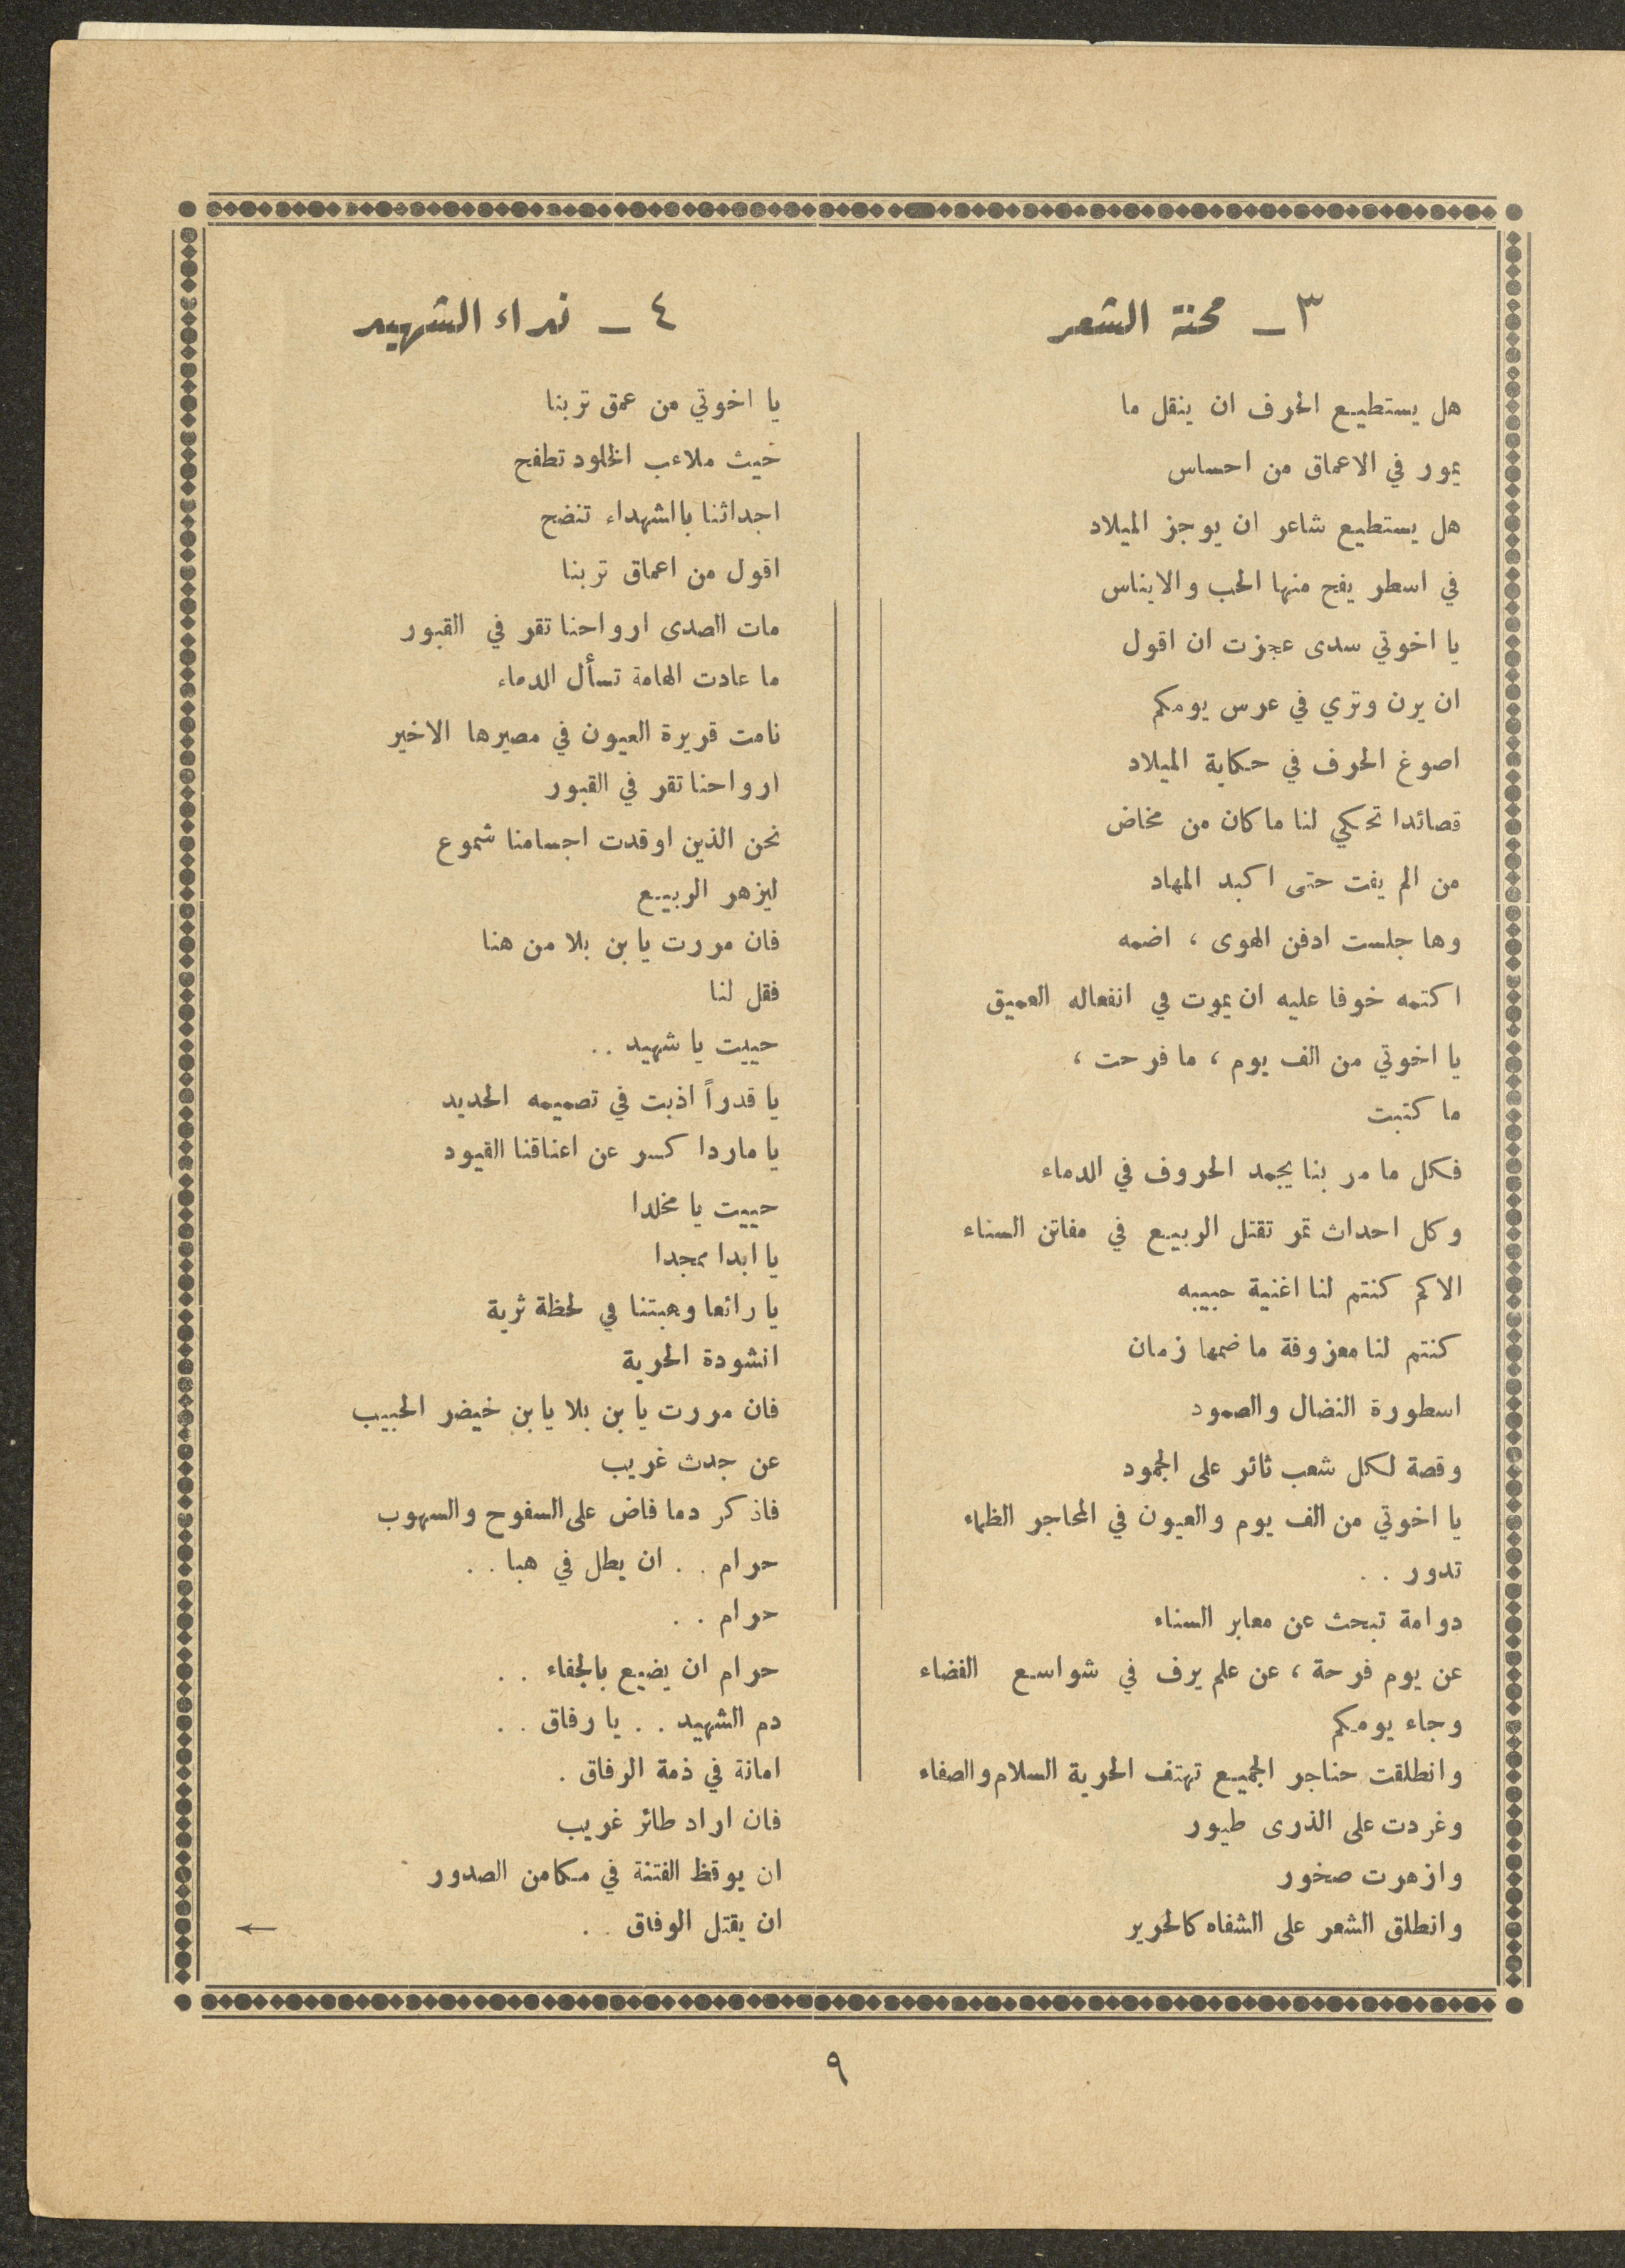 ٣ ـ محنة الشعر
هل يستطيع الحرف ان ينقل ما
يمور في الاعماق من احساس
هل يستطيع شاعر ان يوجز الميلاد
في اسطر يفح منها الحب والايناس
يا اخوتي سدى عجزت ان اقول
ان يرن وتري في عرس يومكم
اصوغ الحرف في حكاية الميلاد
قصائدا تحكي لنا ماكان من مخاض
من الم يفت حتى اكبد المهاد
وها جلست ادفن الهوى ، اضمه
اكتمه خوفا عليه ان يموت في انفعاله العميق
يا اخوتي من الف يوم ، ما فرحت ،
ما كتبت
فكل ما مر بنا يجمد الحروف في الدماء
وكل احداث تمر تقتل الربيع في مفاتن السناء
الاكم كنتم لنا اغنية حبيبه
كنتم لنا معزوفة ما ضمها زمان
اسطورة النضال والصمود
وقصة لكل شعب ثائر على الجمود
يا اخوتي من الف يوم والعيون في المحاجر الظماء
تدور . .
دوامة تبحث عن معابر السناء
عن يوم فرحة ، عن علم يرف في شواسع الفضاء
وجاء يومكم
وانطلقت حناجر الجميع تهتف الحرية السلام والصفاء
وغردت على الذرى طيور
وازهرت صخور
وانطلق الشعر على الشفاه كالحرير
٤ ـ نداء الشهيد
يا اخوتي من عمق تربنا
حيث ملاعب الخلود تطفح
اجداثنا بالشهداء تنضح
اقول من اعماق تربنا
مات الصدى ارواحنا تقر في القبور
ما عادت الهامة تسأل الدماء
نامت قريرة العيون في مصيرها الاخير
ارواحنا تقر في القبور
نحن الذين اوقدت اجسامنا شموع
ليزهر الربيع
فان مررت يا بن بلا من هنا
فقل لنا
حييت يا شهيد ..
يا قدراً اذبت في تصميمه الحديد
يا ماردا كسر عن اعناقنا القيود
حييت يا مخلدا
يا ابدا ممجدا
يا رائعا وهبتنا في لحظة ثرية
انشودة الحرية
فان مررت يا بن بلا يا بن خيضر الحبيب
عن جدث غريب
فاذكر دما فاض على السفوح والسهوب
حرام . . ان يطل في هبا . .
حرام . .
حرام ان يضيع بالجفاء . .
دم الشهيد . . يا رفاق . .
امانة في ذمة الرفاق .
فان اراد طائر غريب
ان يوقظ الفتنة في مكامن الصدور
ان يقتل الوفاق . .
←
٩